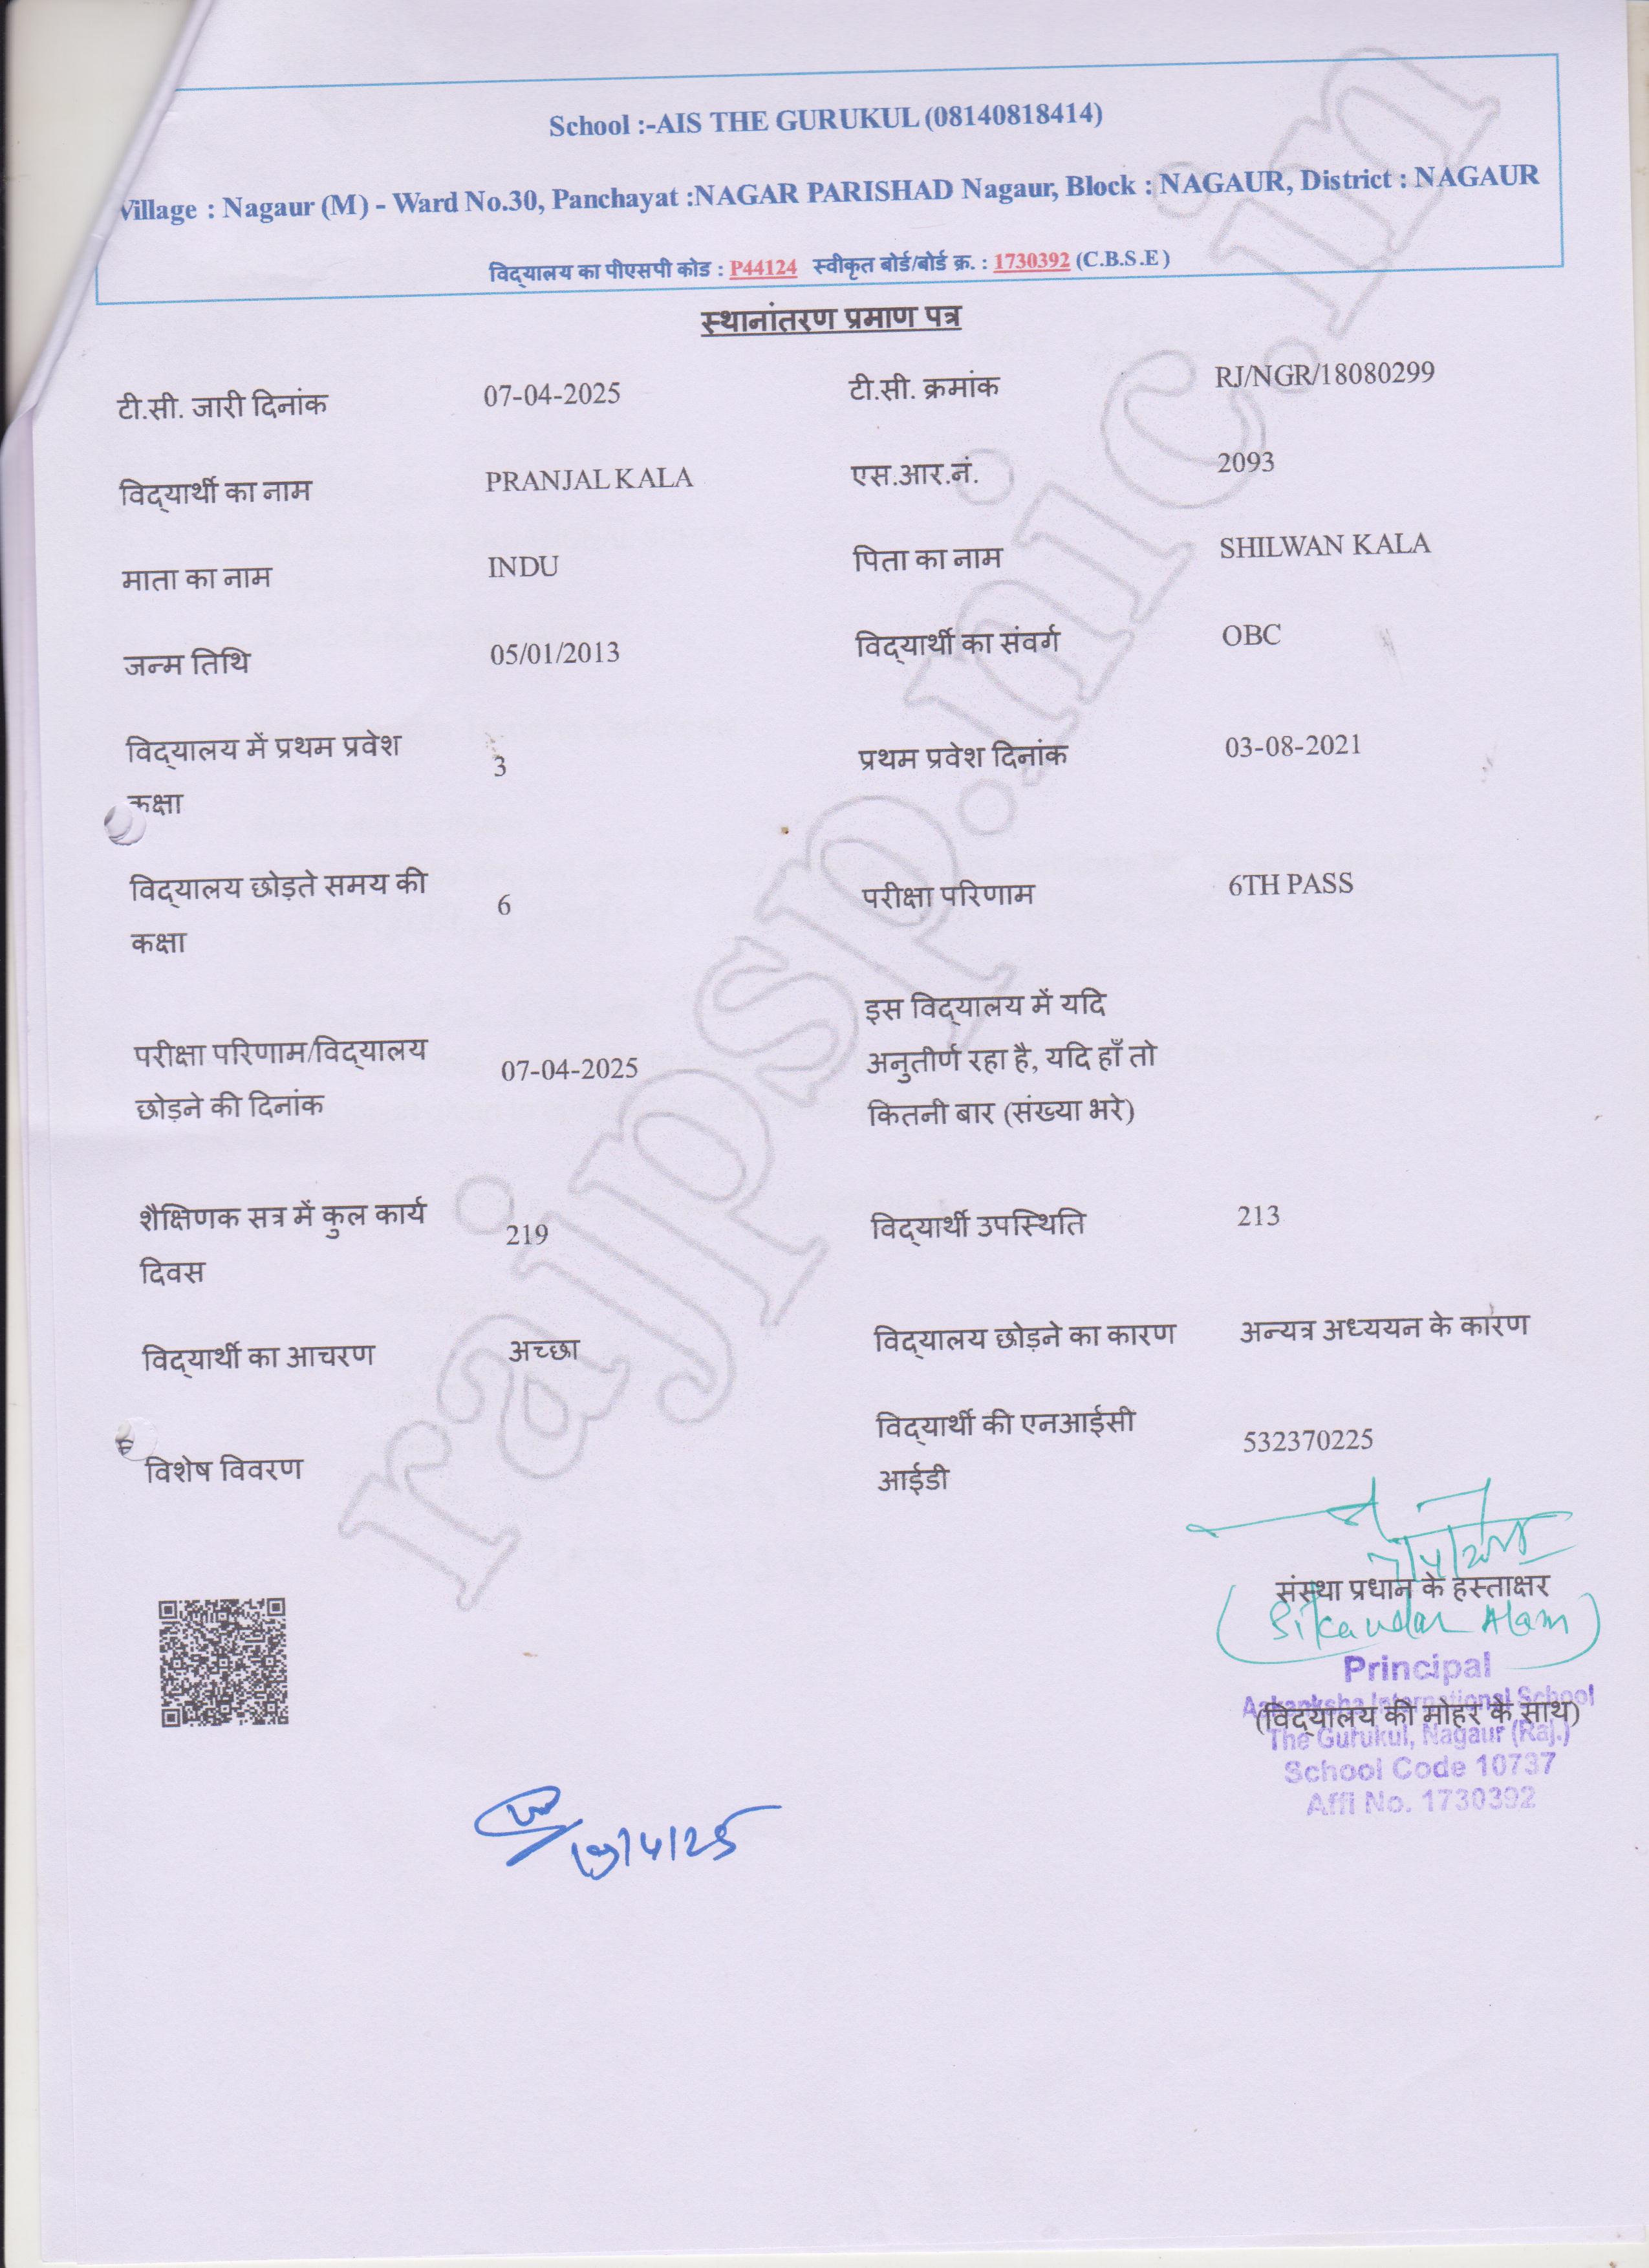 School :-AIS THE GURUKUL (08140818414)
Village : Nagaur (M) - Ward No.30, Panchayat :NAGAR PARISHAD Nagaur, Block : NAGAUR, District : NAGAUR
विद्यालय का पीएसपी कोड : P44124 स्वीकृत बोर्ड/बोर्ड क्र. : 1730392 (C.B.S.E)
स्थानांतरण प्रमाण पत्र
टी.सी. जारी दिनांक 07-04-2025 टी.सी. क्रमांक RJ/NGR/18080299
विद्यार्थी का नाम PRANJAL KALA एस.आर.नं. 2093
माता का नाम INDU पिता का नाम SHILWAN KALA
जन्म तिथि 05/01/2013 विद्यार्थी का संवर्ग OBC
विद्यालय में प्रथम प्रवेश
कक्षा 3 प्रथम प्रवेश दिनांक 03-08-2021
विद्यालय छोड़ते समय की
कक्षा 6 परीक्षा परिणाम 6TH PASS
परीक्षा परिणाम/विद्यालय
छोड़ने की दिनांक 07-04-2025
इस विद्यालय में यदि
अनुतीर्ण रहा है, यदि हाँ तो
कितनी बार (संख्या भरे)
शैक्षिणक सत्र में कुल कार्य
दिवस 219 विद्यार्थी उपस्थिति 213
विद्यार्थी का आचरण अच्छा विद्यालय छोड़ने का कारण अन्यत्र अध्ययन के कारण
विशेष विवरण
विद्यार्थी की एनआईसी
आईडी 532370225
संस्था प्रधान के हस्ताक्षर
(Sikandar Alam)
Principal
Aakanksha International School
(विद्यालय की मोहर के साथ)
The Gurukul, Nagaur (Raj.)
School Code 10737
Affi No. 1730392
rajpsp.nic.in